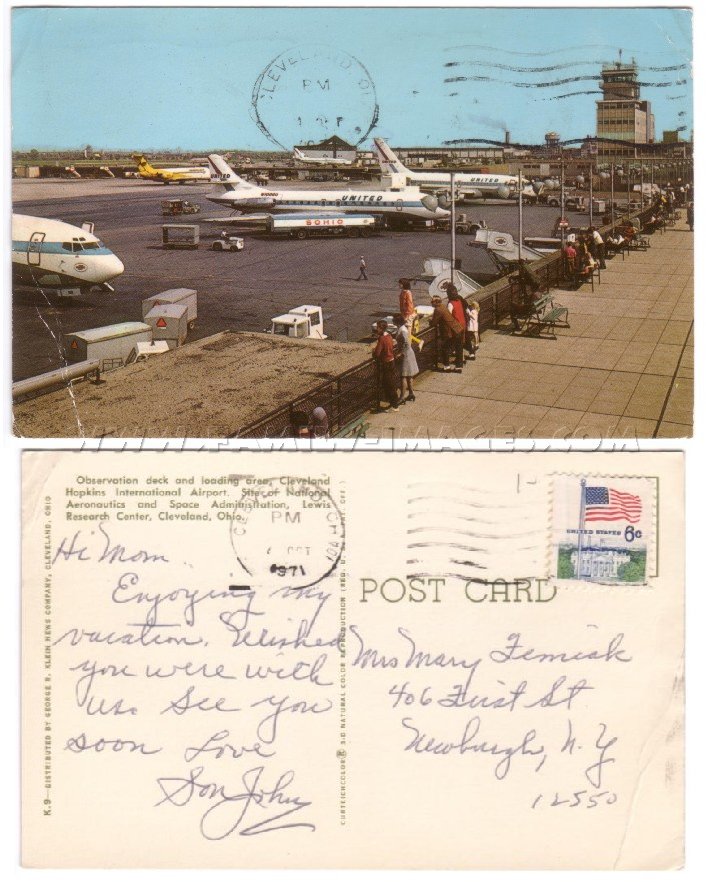 CLEVELAND
PM
UNITED
UNITED
SOHIO
WWW.FAMILY-IMAGES.COM
Observation deck and loading area, Cleveland
Hopkins International Airport. Site of National
Aeronautics and Space Administration, Lewis
Research Center, Cleveland, Ohio.
PM
OCT
1971
UNITED STATES
6c
POST CARD
Hi Mom
Enjoying my
vacation. Wished
you were with
us. See you
soon Love
Son John
Mrs Mary
406 First St
Newburgh, N.Y
12550
K.9—DISTRIBUTED BY GEORGE R. KLEIN NEWS COMPANY, CLEVELAND, OHIO